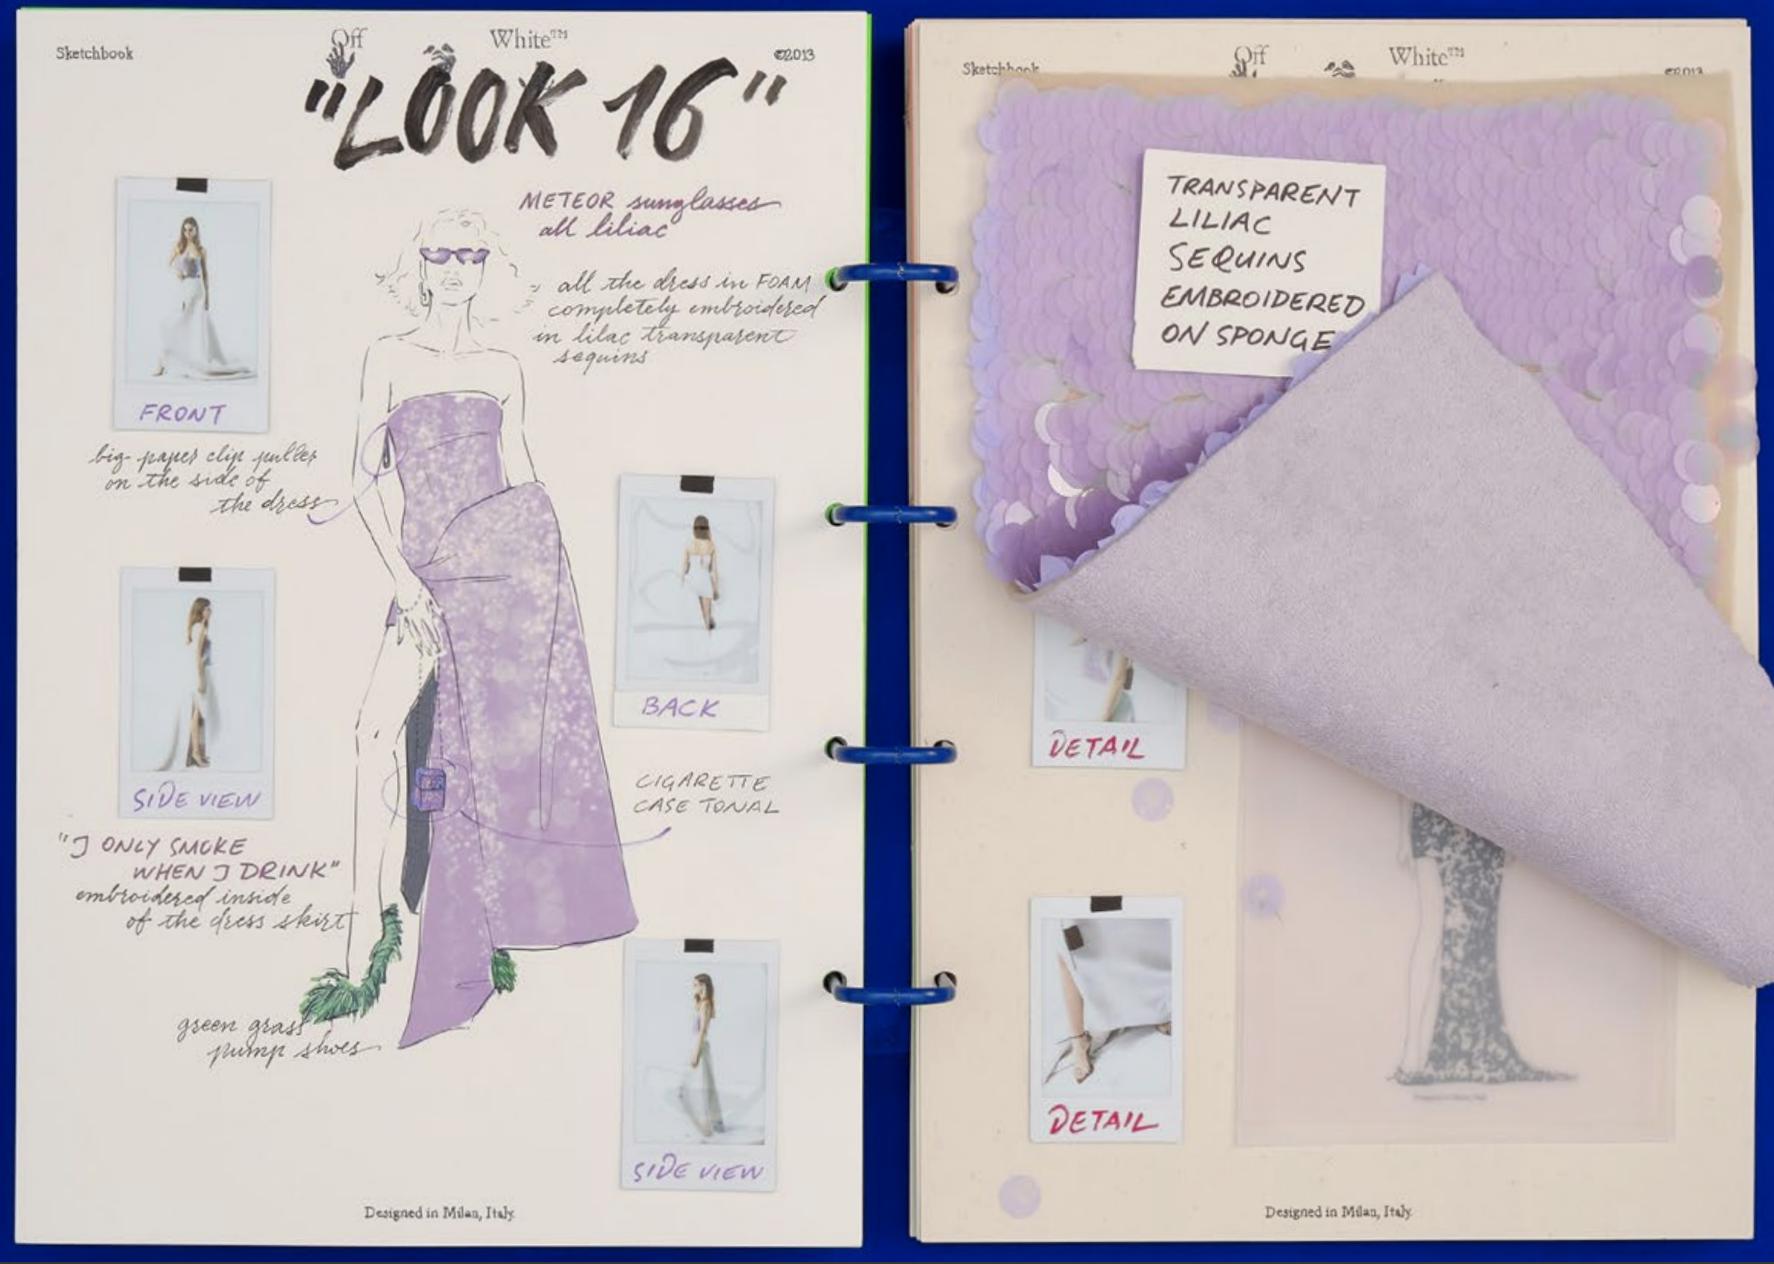 Sketchbook
Off White™
©2013
"LOOK 16"
METEOR sunglasses
all liliac
all the dress in FOAM
completely embroidered
in lilac transparent
sequins
FRONT
big paper clip puller
on the side of
the dress
BACK
SIDE VIEW
CIGARETTE
CASE TONAL
"I ONLY SMOKE
WHEN I DRINK"
embroidered inside
of the dress skirt
green grass
pump shoes
SIDE VIEW
Designed in Milan, Italy.
Sketchbook
Off White™
©2013
TRANSPARENT
LILIAC
SEQUINS
EMBROIDERED
ON SPONGE
DETAIL
DETAIL
Designed in Milan, Italy.